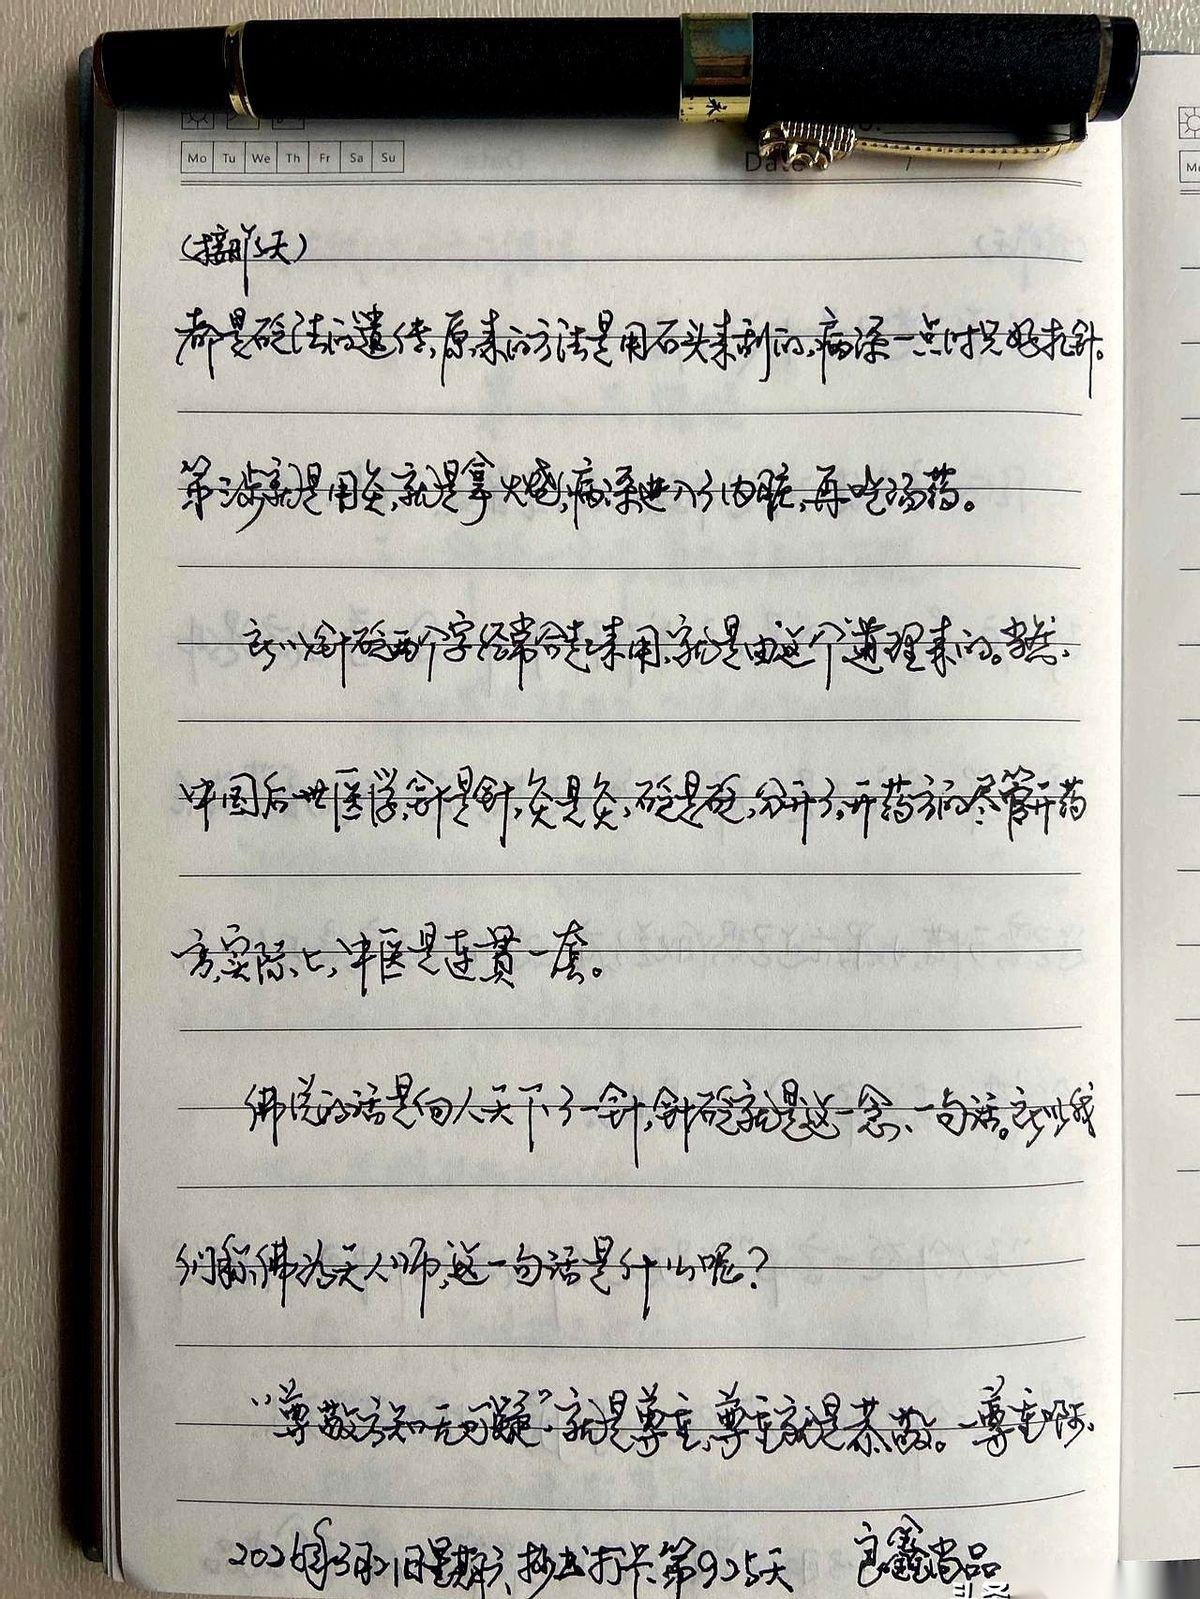 Mo Tu We Th Fr Sa Su
Date / /
(接昨天)
都是砭法的遗传,原来的方法是用石头来刮的,病深一点时只好扎针。
第三步就是用灸,就是拿火烧,病深进入了内脏,再吃汤药。
所以针砭两个字经常合起来用,就是由这个道理来的。当然,
中国后世医学,针是针,灸是灸,砭是砭,分开了,开药方的尽管开药
方,实际上,中医是连贯一套。
佛说的话是向人天下了一针,针砭就是这一念、一句话。所以我
们称佛为天人师,这一句话是什么呢?
“尊敬方知无可疑”就是尊重,尊重就是恭敬。尊重所
2026年3月21日星期六、抄书打卡第925天 良鑫尚品
头条